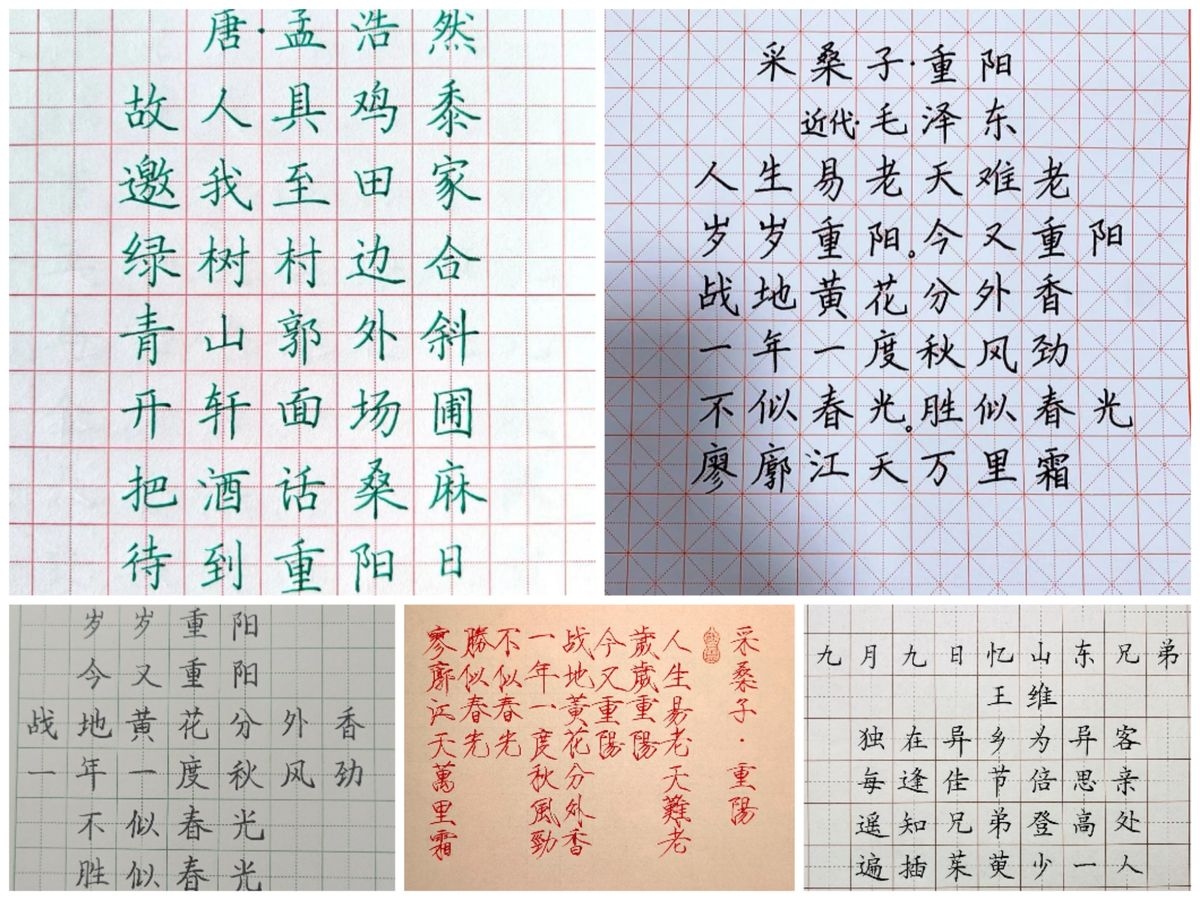 唐·孟浩然
故人具鸡黍
邀我至田家
绿树村边合
青山郭外斜
开轩面场圃
把酒话桑麻
待到重阳日
采桑子·重阳
近代·毛泽东
人生易老天难老
岁岁重阳。今又重阳
战地黄花分外香
一年一度秋风劲
不似春光。胜似春光
廖廓江天万里霜
岁岁重阳
今又重阳
战地黄花分外香
一年一度秋风劲
不似春光
胜似春光
采桑子·重陽
人生易老天難老
歲歲重陽
今又重陽
战地黄花分外香
一年一度秋風勁
不似春光
勝似春光
寥廓江天萬里霜
九月九日忆山东兄弟
王维
独在异乡为异客
每逢佳节倍思亲
遥知兄弟登高处
遍插茱萸少一人